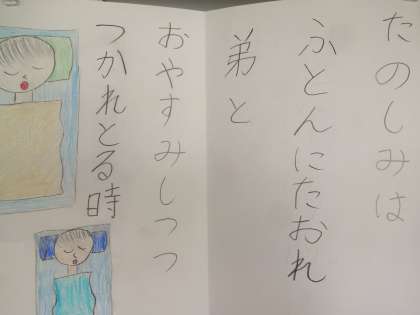 たのしみは
ふとんにたおれ
弟と
おやすみしつつ
つかれとる時